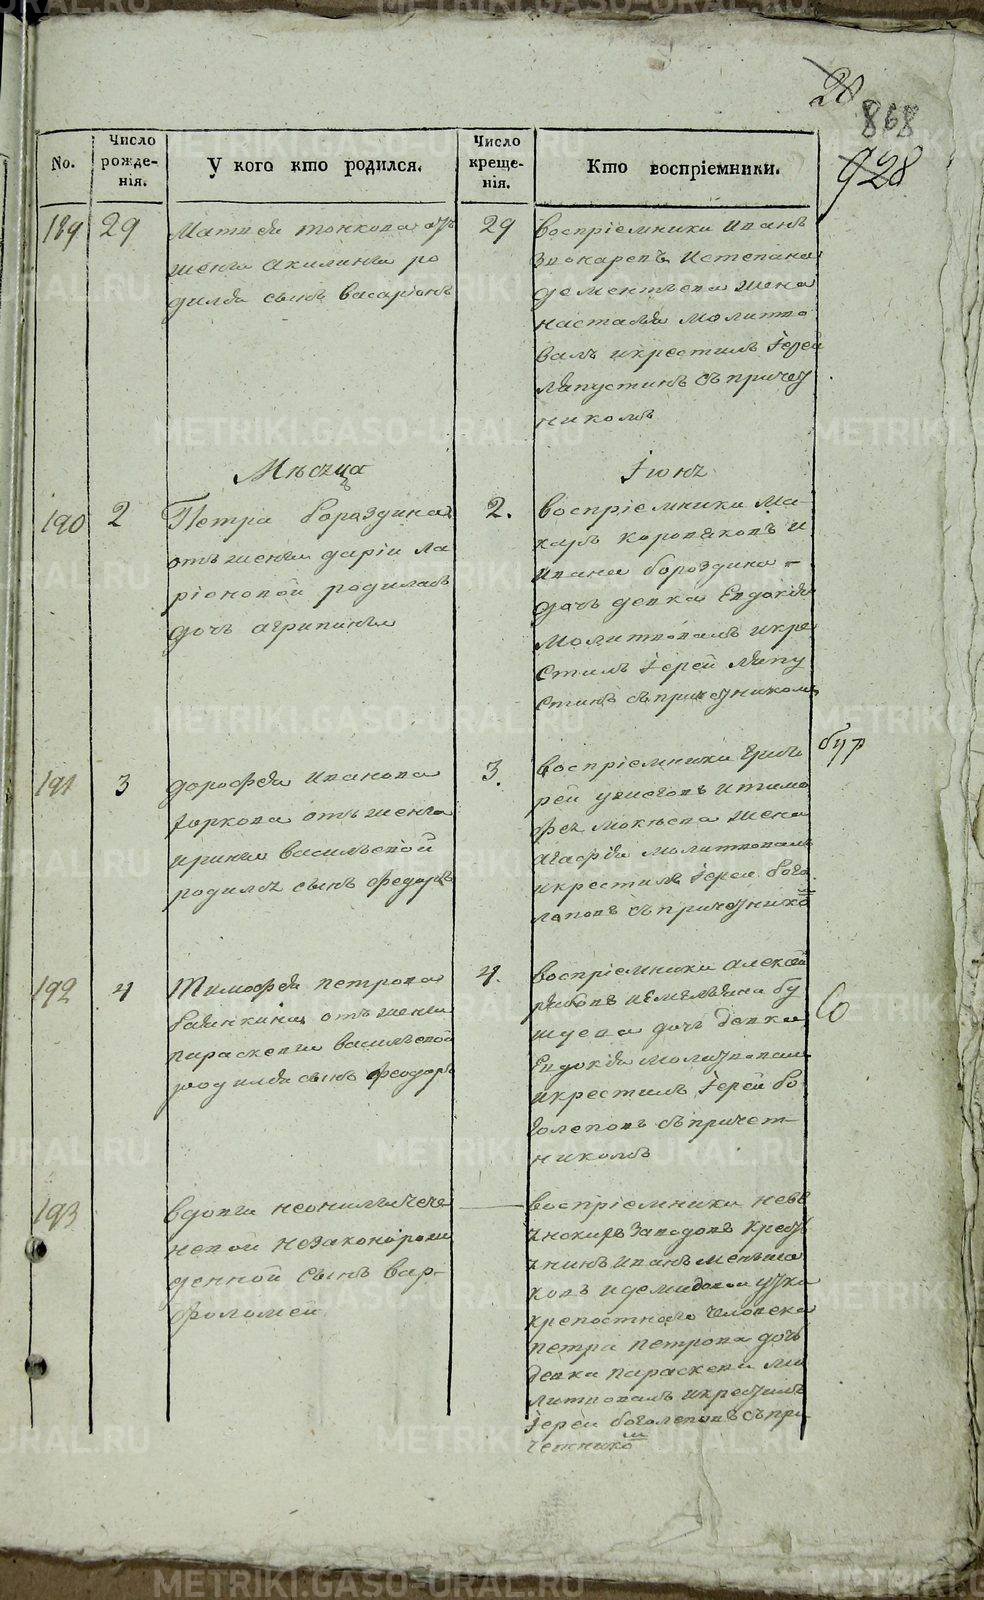 20
868
928
No.
Число рожде-нія.
У кого кто родился.
Число креще-нія.
Кто воспріемники.
189
29
Матвея тонкова отъ
жены акилины ро
дился сынъ васаріонъ
29
воспріемники иванъ
истепана
дементьева жена
настасья молитво
валъ икрестилъ Іерей
ляпустинъ съ причет
никомъ
Мѣсяца
Іюнь
190
2
Петра бораздина
отъ жены даріи ла
ріоновой родилась
дочь агрипина
2.
воспріемники ма-
каръ коровяковъ и
ивана бороздина
дочь девка Евдокия
молитвовалъ икре
стилъ Іерей ляпу
стинъ съ причетникомъ
191
3
дорофея иванова
торкова отъ жены
ирины васильевой
родился сынъ федоръ
3.
воспріемники григо
рей итимо
фея мокѣева жена
агафья молитвовалъ
икрестилъ Іерей бого
леповъ съ причетнико
192
4
Тимофея петрова
отъ жены
параскевы васильевой
родился сынъ феодоръ
4.
воспріемники алексей
рябовъ иемельяна бу
шуева дочь девка
Евдокия молитвовалъ
икрестилъ Іерей бо
голеповъ съ причет-
никомъ
193
вдовы неонилы чече
невой незаконорож
денной сынъ вар-
фоломей
воспріемники невь
янскихъ заводовъ
иванъ меньша
ковъ идемидова
крепостнаго человека
петра петрова дочь
девка параскева мо
литвовалъ икрестилъ
Іерей боголеповъ съ при
четнико
METRIKI.GASO-URAL.RU